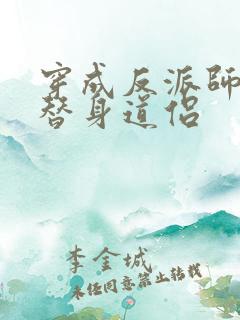 穿成反派師
替身道侶
李金城
未经同意禁止转载